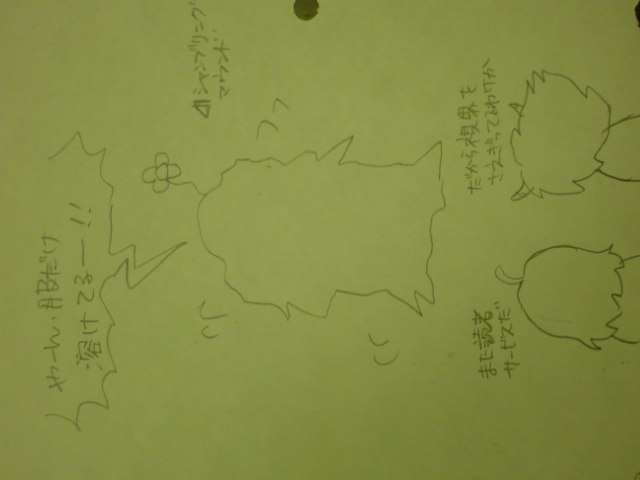 やーん、服だけ
溶けてるー!!
シャンブリング
マウンド
だから視界を
さえぎってるわけか
また読者
サービスだ